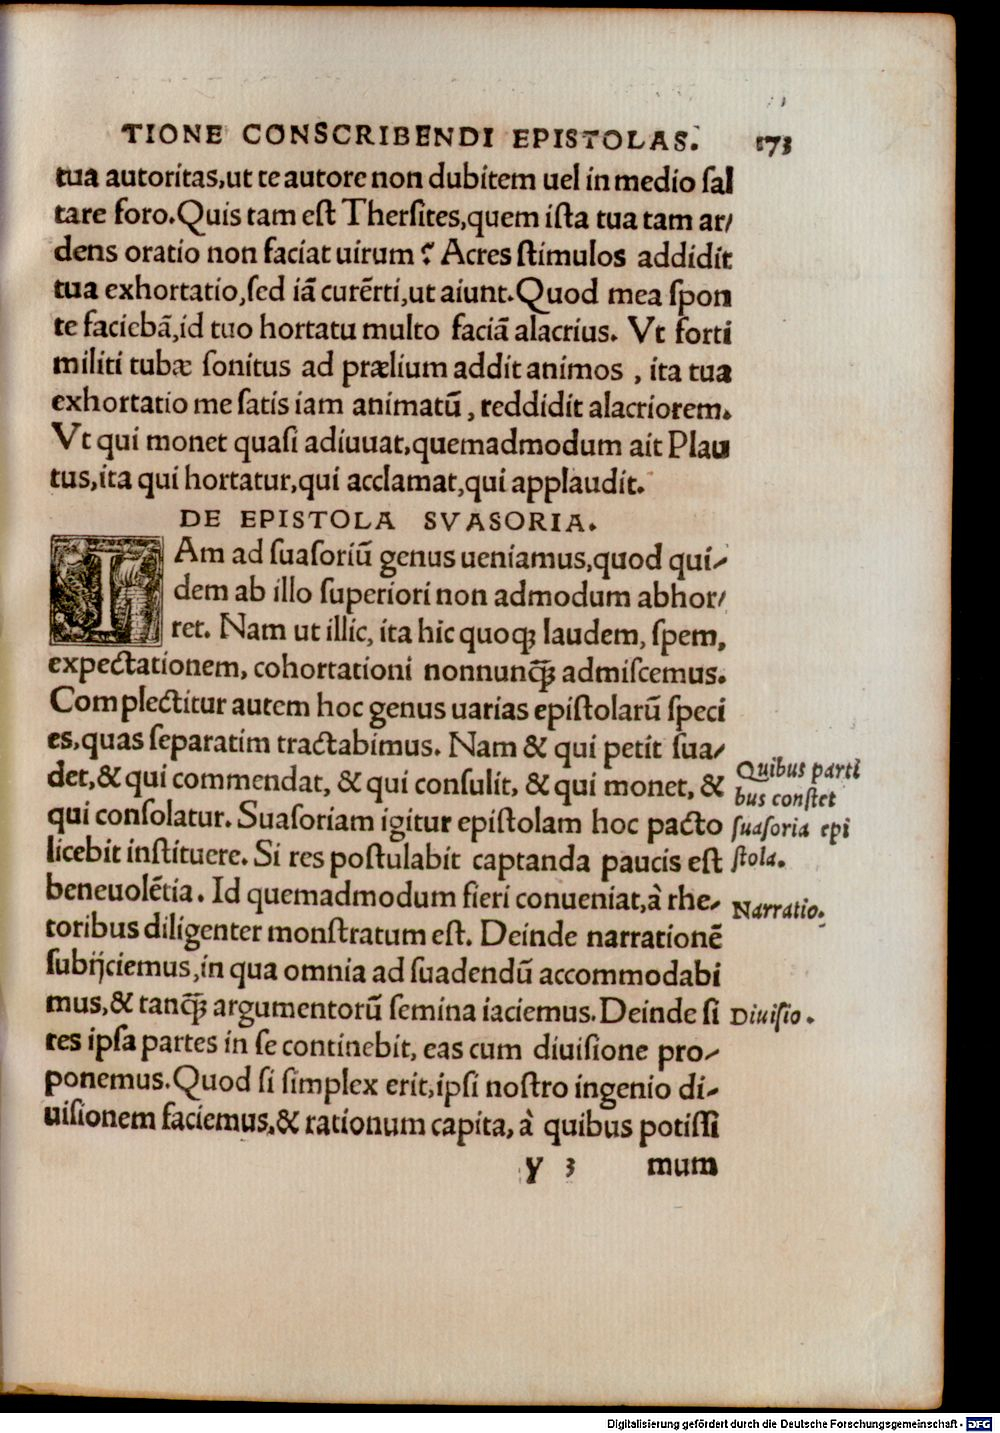 TIONE CONSCRIBENDI EPISTOLAS. 173
tua autoritas,ut te autore non dubitem uel in medio ſal
tare foro.Quis tam eſt Therſites,quem iſta tua tam ar/
dens oratio non faciat uirum ? Acres ſtimulos addidit
tua exhortatio,ſed iã curẽrti,ut aiunt.Quod mea ſpon
te faciebã,id tuo hortatu multo faciã alacrius. Vt forti
militi tubæ ſonitus ad prælium addit animos , ita tua
exhortatio me ſatis iam animatũ , reddidit alacriorem.
Vt qui monet quaſi adiuuat,quemadmodum ait Plau
tus,ita qui hortatur,qui acclamat,qui applaudit.
DE EPISTOLA SVASORIA.
IAm ad ſuaſoriũ genus ueniamus,quod qui/
dem ab illo ſuperiori non admodum abhor/
ret. Nam ut illic, ita hic quoqꝫ laudem, ſpem,
expectationem, cohortationi nonnunq̃ꝫ admiſcemus.
Complectitur autem hoc genus uarias epiſtolarũ ſpeci
es,quas ſeparatim tractabimus. Nam & qui petit ſua/
det,& qui commendat, & qui conſulit, & qui monet, &
qui conſolatur. Suaſoriam igitur epiſtolam hoc pacto
licebit inſtituere. Si res poſtulabit captanda paucis eſt
beneuolẽtia. Id quemadmodum fieri conueniat,à rhe/
toribus diligenter monſtratum eſt. Deinde narrationẽ
ſubijciemus,in qua omnia ad ſuadendũ accommodabi
mus,& tanq̃ꝫ argumentorũ ſemina iaciemus.Deinde ſi
res ipſa partes in ſe continebit, eas cum diuiſione pro/
ponemus.Quod ſi ſimplex erit,ipſi noſtro ingenio di/
uiſionem faciemus,& rationum capita, à quibus potiſſi
y 3 mum
Quibus parti
bus conſtet
ſuaſoria epi
ſtola.
Narratio.
Diuiſio.
Digitalisierung gefördert durch die Deutsche Forschungsgemeinschaft - DFG